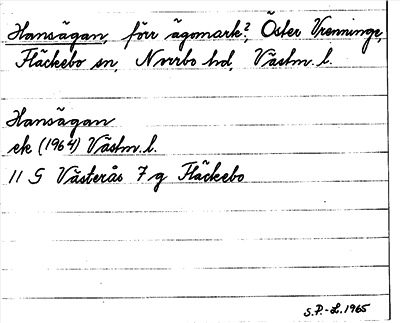 Hansägan, förr ägomark?, Öster Vrenninge,
Fläckebo sn, Norrbo hd, Västm. l.
Hansägan
ek (1964) Västm. l.
11 G Västerås 7 g Fläckebo
S.P.-L. 1965